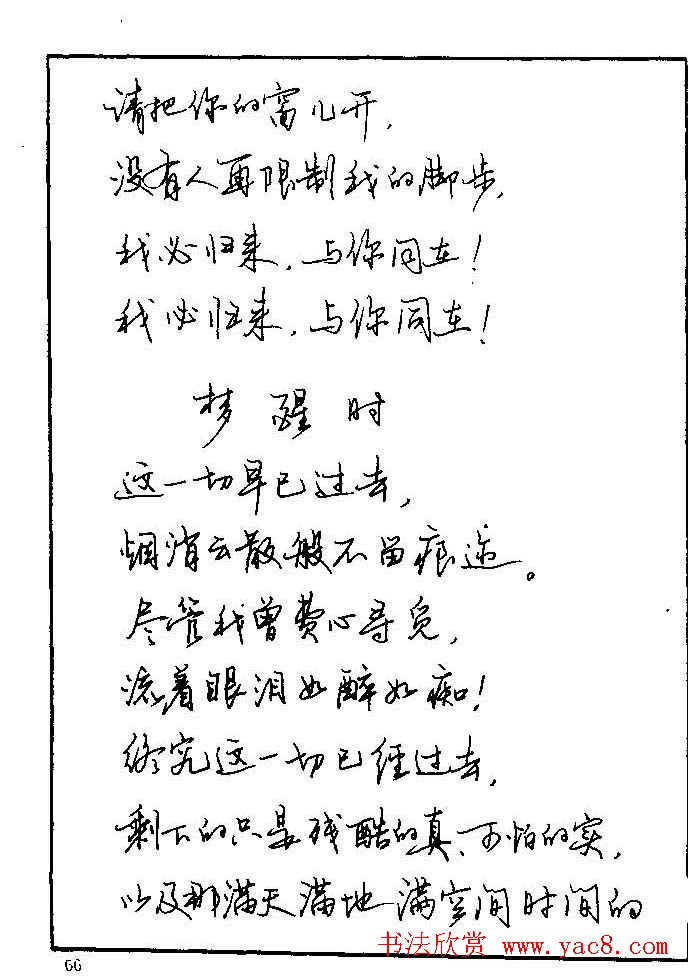 请把你的窗儿开，
没有人再限制我的脚步，
我必归来，与你同在！
我必归来，与你同在！
梦醒时
这一切早已过去，
烟消云散般不留痕迹。
尽管我曾费心寻觅，
流着眼泪如醉如痴！
终究这一切已经过去，
剩下的只是残酷的真、可怕的实，
以及那满天满地满空间时间的
书法欣赏 www.yac8.com
66